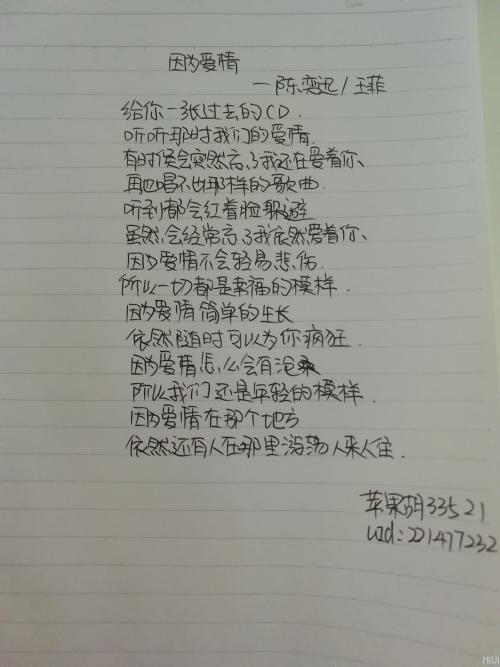 因为爱情
—陈奕迅/王菲
给你一张过去的CD.
听听那时我们的爱情.
有时候会突然忘了我还在爱着你、
再也唱不出那样的歌曲.
听到都会红着脸躲避
虽然会经常忘了我依然爱着你、
因为爱情不会轻易悲伤.
所以一切都是幸福的模样.
因为爱情简单的生长
依然随时可以为你疯狂.
因为爱情怎么会有沧桑
所以我们还是年轻的模样.
因为爱情在那个地方
依然还有人在那里游荡人来人往.
苹果胡33521
uid:221477232
MIUI